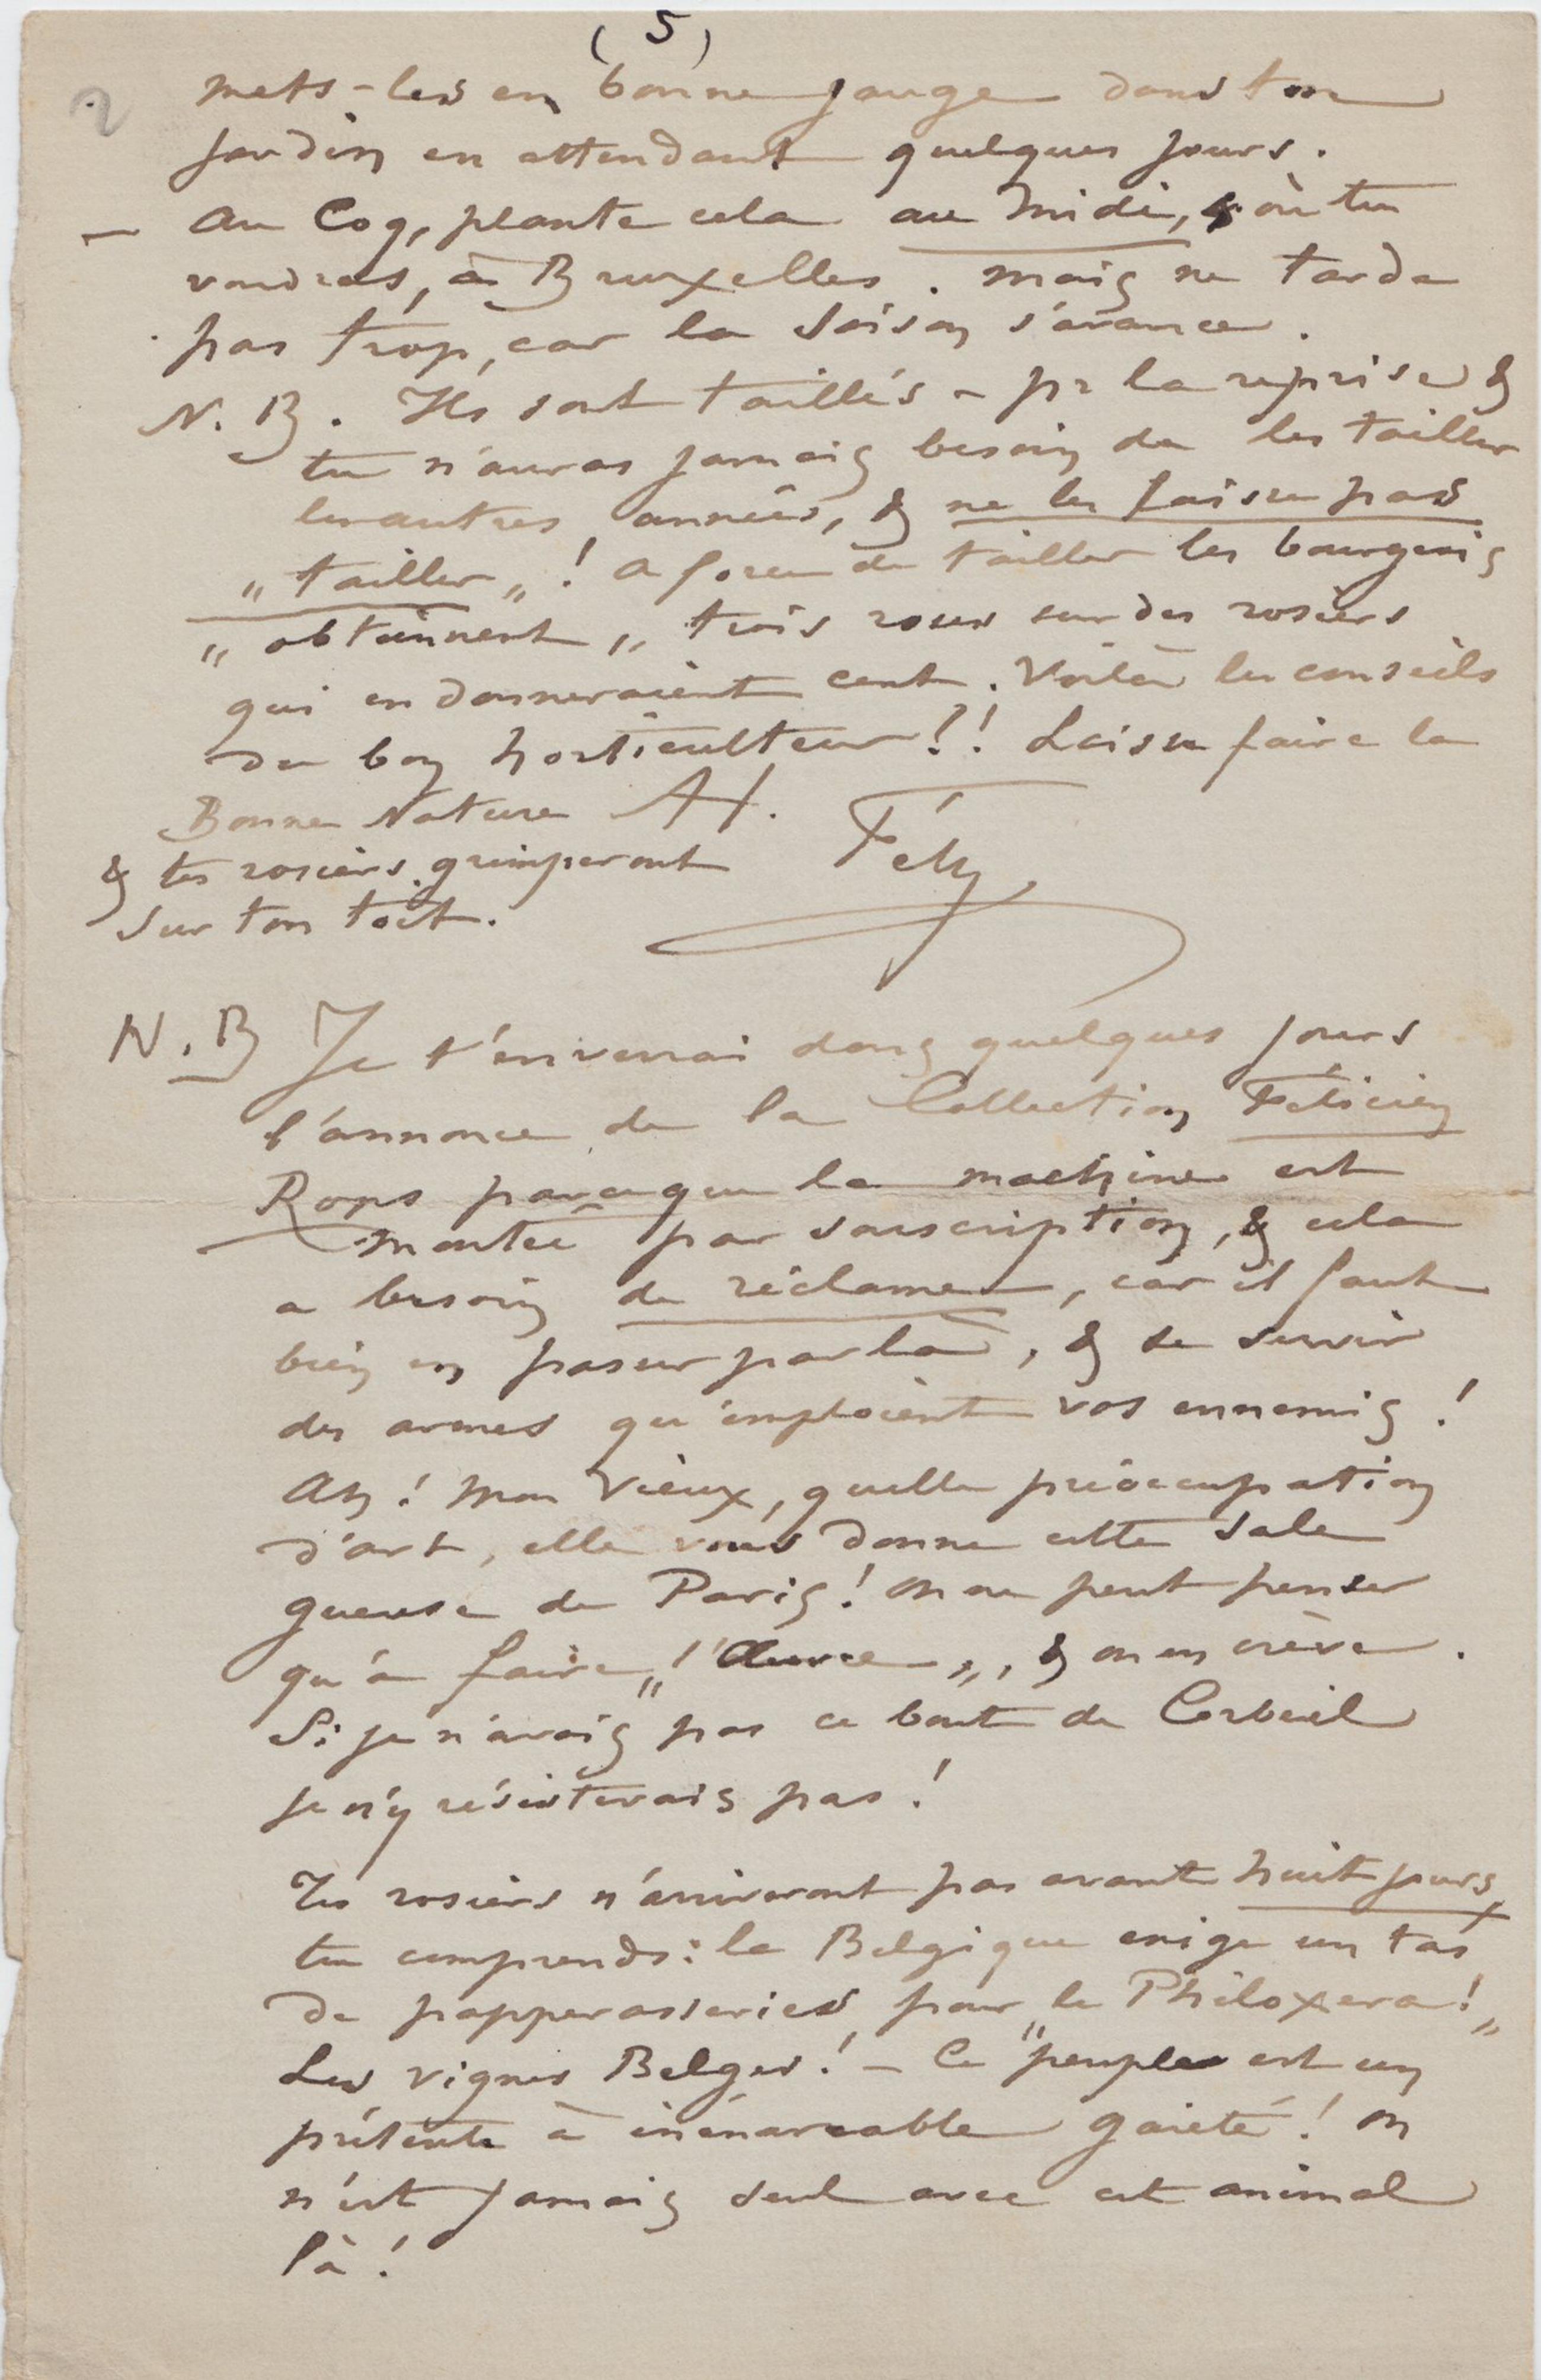 (5)
2
mets-les en bonne jauge dans ton
jardin en attendant quelques jours.
— au Coq, plante cela au midi, & où tu
voudras, à Bruxelles. mais ne tarde
pas trop, car la saison s'avance.
N. B. Ils sont taillés – pr la reprise &
tu n'auras jamais besoin de les tailler
les autres années, & ne les laisse pas
„ tailler „ ! a force de tailler les bourgeois
„ obtiennent „ trois roses sur des rosiers
qui en donneraient cent. Voilà les conseils
du bon horticulteur!! Laisse faire la
Bonne Nature
& tes rosiers grimperont Fély
sur ton toit.
N. B Je t'enverrai dans quelques jours
l'annonce de la Collection Félicien
Rops parceque la machine est
montée par souscription, & cela
a besoin de réclame, car il faut
bien en passer par là, & se servir
des armes qu'emploient vos ennemis !
Ah ! mon Vieux, quelle préoccupation
d'art, elle vous donne cette sale
gueuse de Paris ! on ne peut penser
qu'à faire „ l'Œuvre „, & on en crève.
Si je n'avais pas ce bout de Corbeil
je n'y résisterais pas !
Tes rosiers n'arriveront pas avant huit jours,
tu comprends : la Belgique exige un tas
de papperasseries pour „ le Philoxera ! „
Les vignes Belges ! – Ce peuple est un
prétexte à inénarrable gaieté ! on
n'est jamais seul avec cet animal
là !